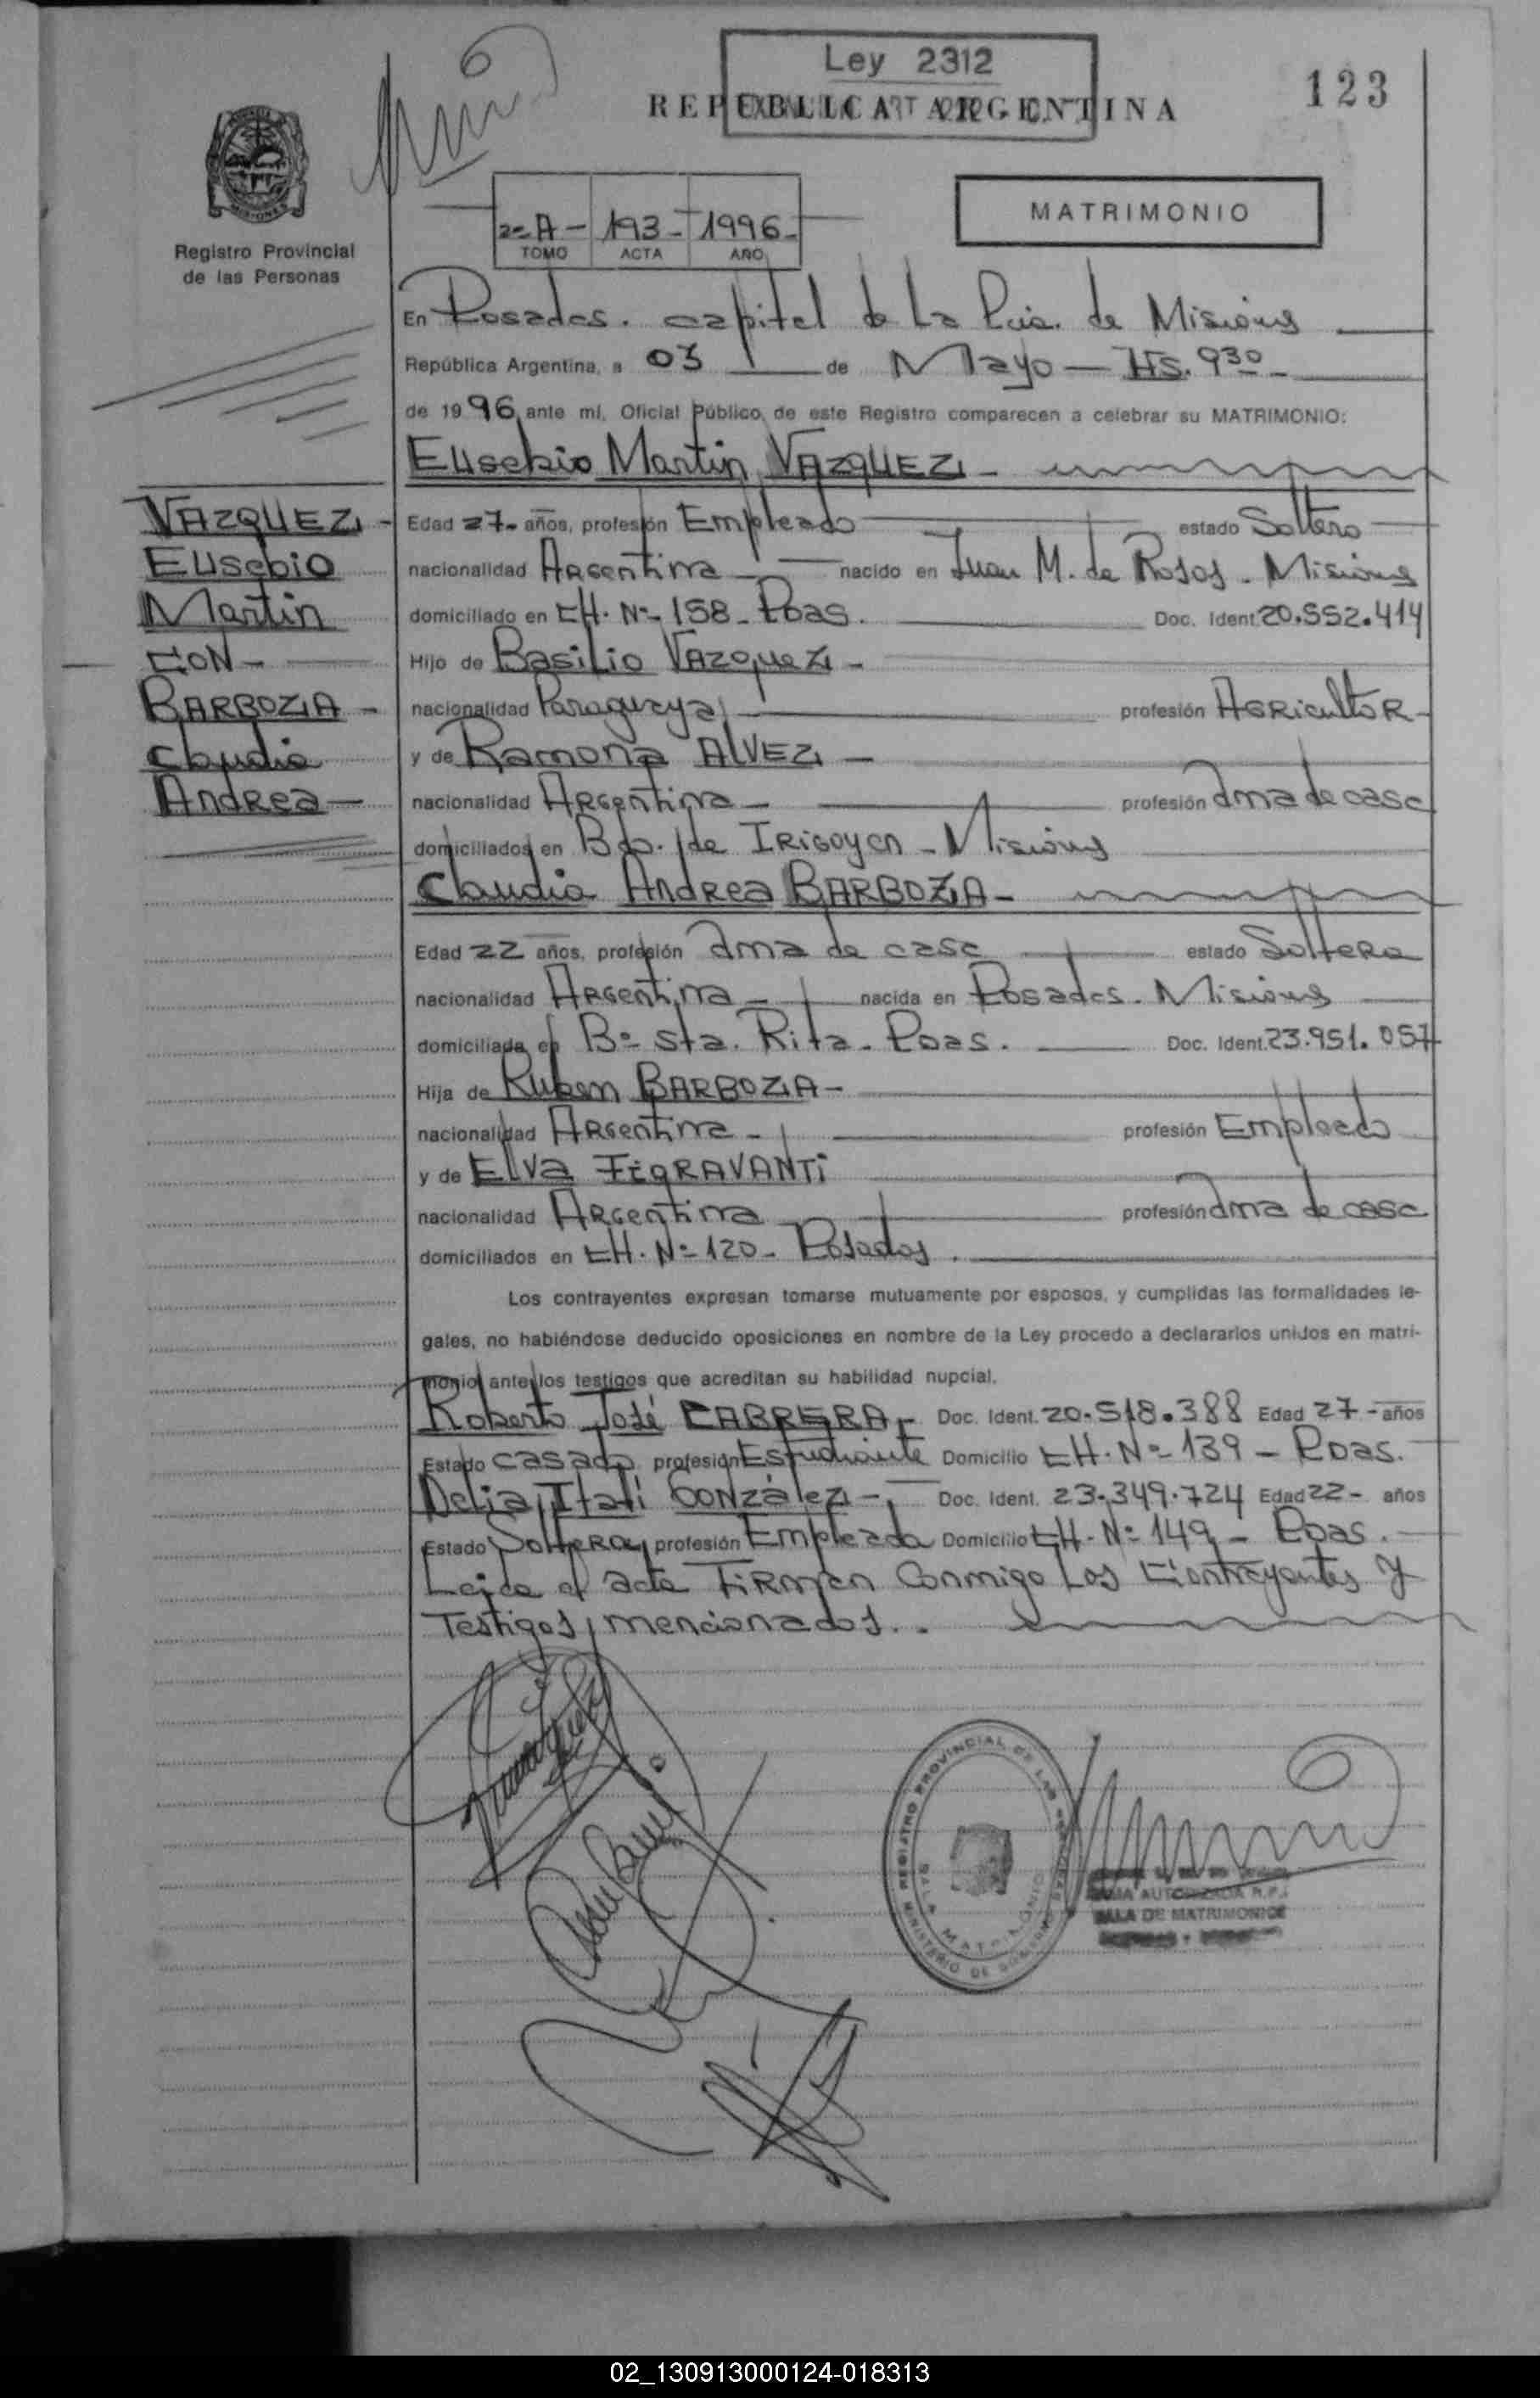 Ley 2312
REPUBLICA ARGENTINA
123
MISIONES
Registro Provincial
de las Personas
2º A - 193 - 1996 -
TOMO ACTA AÑO
MATRIMONIO
En Posadas. capital de La Pcia. de Misiones
República Argentina, a 03 de Mayo - Hs. 9 30 -
de 1996, ante mí, Oficial Público, de este Registro comparecen a celebrar su MATRIMONIO:
Eusebio Martin VAZQUEZ -
VAZQUEZ -
Eusebio
Martin
CON -
BARBOZA -
Claudia
Andrea -
Edad 27- años, profesión Empleado estado Soltero
nacionalidad Argentina - nacido en Juan M. de Rosas - Misiones
domiciliado en CH. Nº 158 - Pdas. Doc. Ident. 20.552.414
Hijo de Basilio VAZQUEZ -
nacionalidad Paraguaya profesión Agricultor -
y de Ramona ALVEZ -
nacionalidad Argentina - profesión Ama de casa
domiciliados en Bdo. de Irigoyen - Misiones
Claudia Andrea BARBOZA -
Edad 22 años, profesión Ama de casa estado Soltera
nacionalidad Argentina - nacida en Posadas - Misiones
domiciliada en Bº Sta. Rita - Pdas. Doc. Ident. 23.951.057
Hija de Ruben BARBOZA -
nacionalidad Argentina - profesión Empleado
y de Elva FIGRAVANTI
nacionalidad Argentina profesión Ama de casa
domiciliados en CH. Nº 120 - Posadas.
Los contrayentes expresan tomarse mutuamente por esposos, y cumplidas las formalidades le-
gales, no habiéndose deducido oposiciones en nombre de la Ley procedo a declararlos unidos en matri-
monio, ante los testigos que acreditan su habilidad nupcial.
Roberto José CABRERA - Doc. Ident. 20.518.388 Edad 27 - años
Estado casado profesión Estudiante Domicilio CH. Nº 139 - Pdas.
Delia Itatí González - Doc. Ident. 23.349.724 Edad 22 - años
Estado Soltera, profesión Empleada Domicilio CH. Nº 149 - Pdas.
Leída el acta Firman Conmigo Los Contrayentes y
Testigos mencionados. .
REGISTRO PROVINCIAL DE LAS PERSONAS
SALA MATRIMONIO
MINISTERIO DE GOBIERNO
FIRMA AUTORIZADA R.P.
SALA DE MATRIMONIOS
02_130913000124-018313